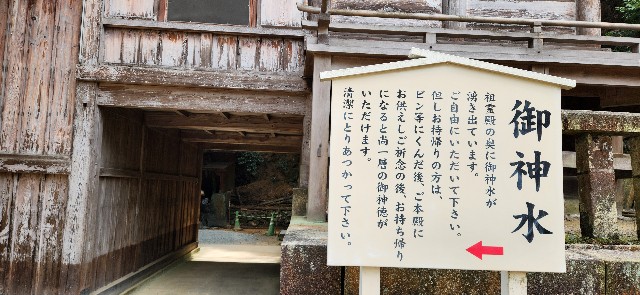 御神水
祖霊殿の奥に御神水が
湧き出ています。
ご自由にいただいて下さい。
但しお持帰りの方は、
ビン等にくんだ後、ご本殿に
お供えしご祈念の後、お持ち帰り
になると尚一層の御神徳が
いただけます。
清潔にとりあつかって下さい。